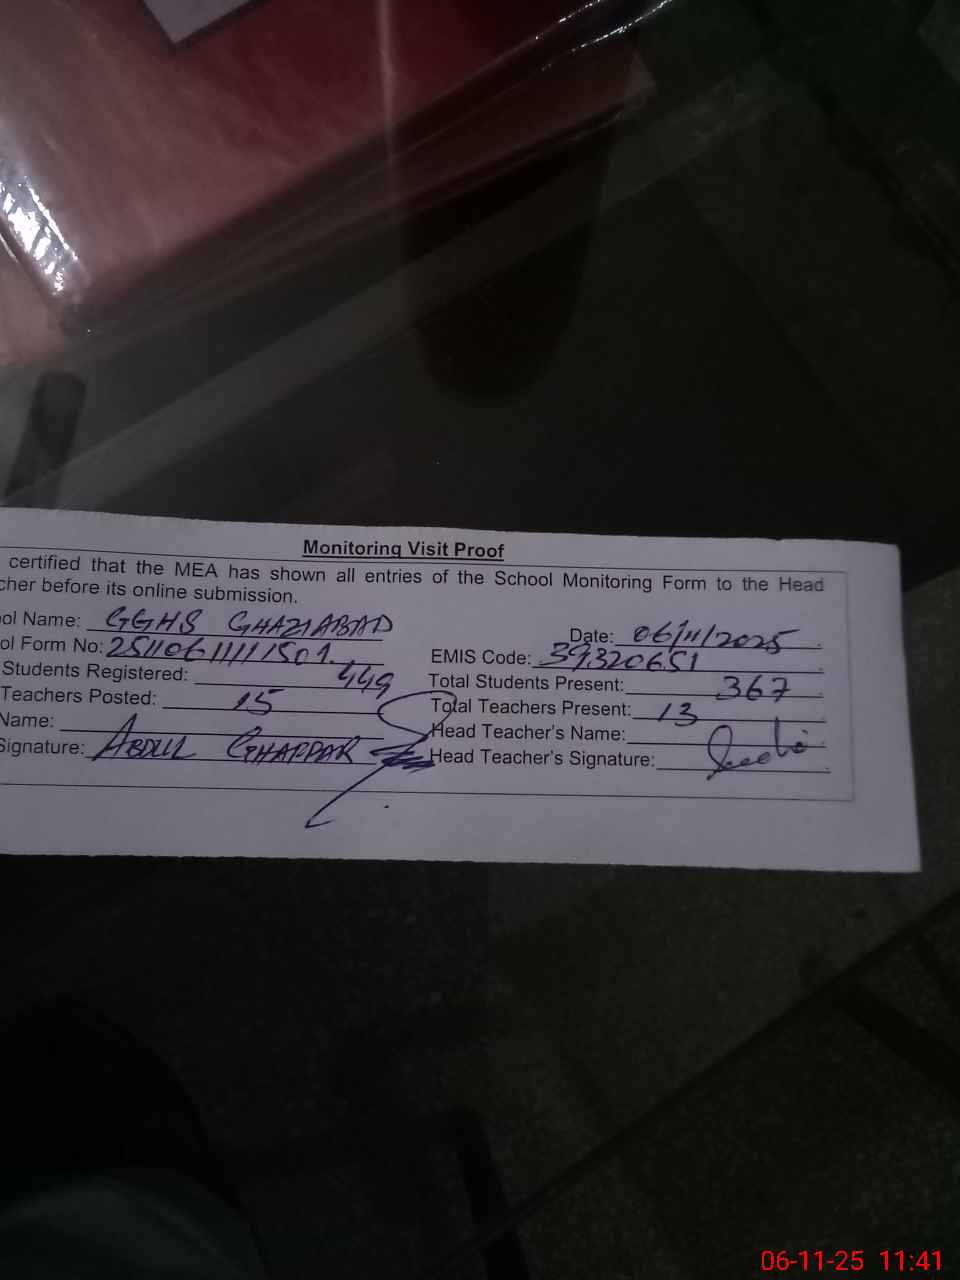 Monitoring Visit Proof
certified that the MEA has shown all entries of the School Monitoring Form to the Head
cher before its online submission.
ool Name: GGHS GHAZIABAD
Date: 06/11/2025
ol Form No: 25110611111501
EMIS Code: 39320651
Students Registered: 449
Total Students Present: 367
Teachers Posted: 15
Total Teachers Present: 13
Name:
Head Teacher's Name:
Signature: ABDUL GHAFFAR
Head Teacher's Signature:
06-11-25 11:41